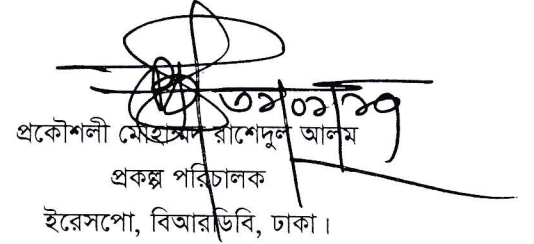 ৩১|০১|২৭
প্রকৌশলী মোহাম্মদ রাশেদুল আলম
প্রকল্প পরিচালক
ইরেসপো, বিআরডিবি, ঢাকা।